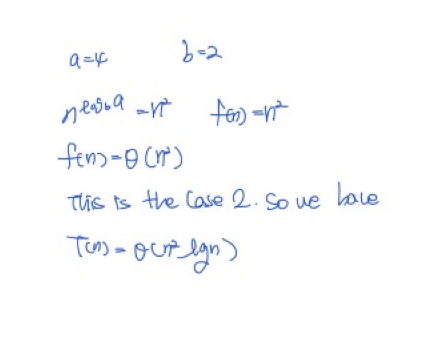 a=4 b=2
n^{log_b a} = n² f(n) = n²
f(n) = θ(n²)
This is the Case 2. So we have
T(n) = θ(n² lgn)